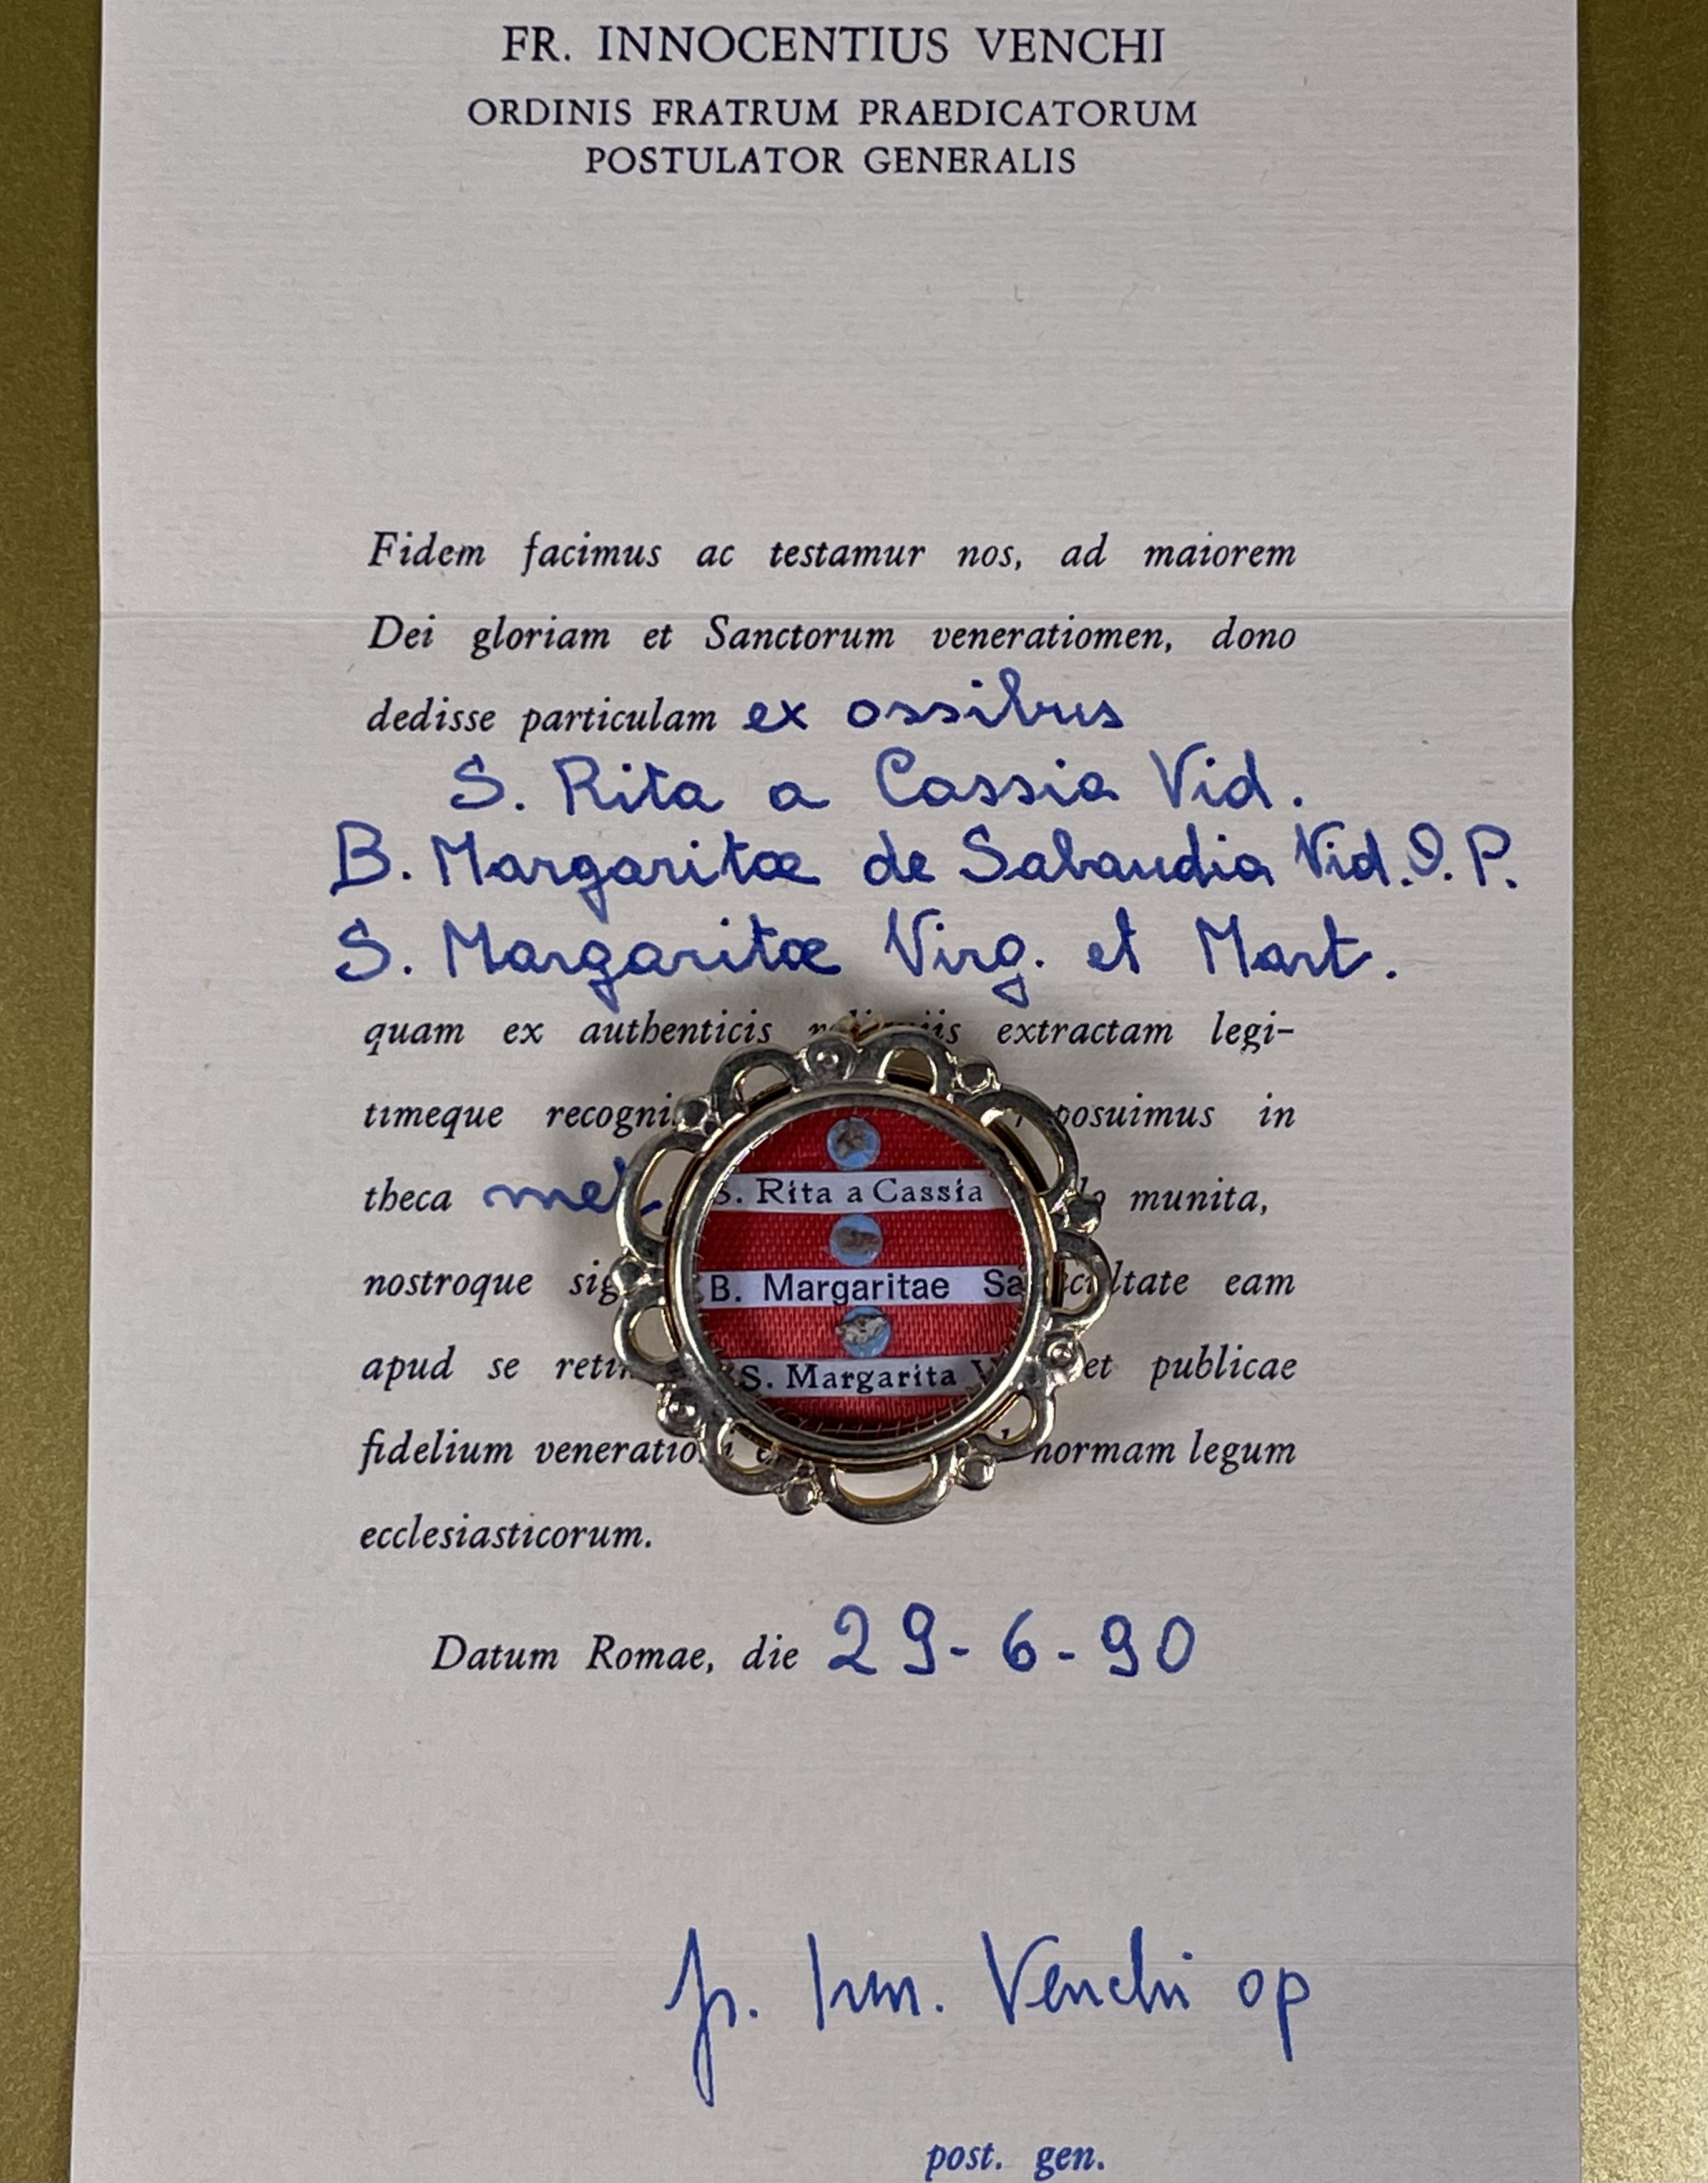 FR. INNOCENTIUS VENCHI
ORDINIS FRATRUM PRAEDICATORUM
POSTULATOR GENERALIS
Fidem facimus ac testamur nos, ad maiorem
Dei gloriam et Sanctorum veneratiomen, dono
dedisse particulam ex ossibus
S. Rita a Cassia Vid.
B. Margaritæ de Sabaudia Vid. O. P.
S. Margaritæ Virg. et Mart.
quam ex authenticis reliquiis extractam legi-
timeque posuimus in
theca munita,
nostroque eam
apud se et publicae
fidelium normam legum
ecclesiasticorum.
S. Rita a Cassia
B. Margaritae
S. Margarita
Datum Romae, die 29-6-90
fr. Inn. Venchi op
post. gen.